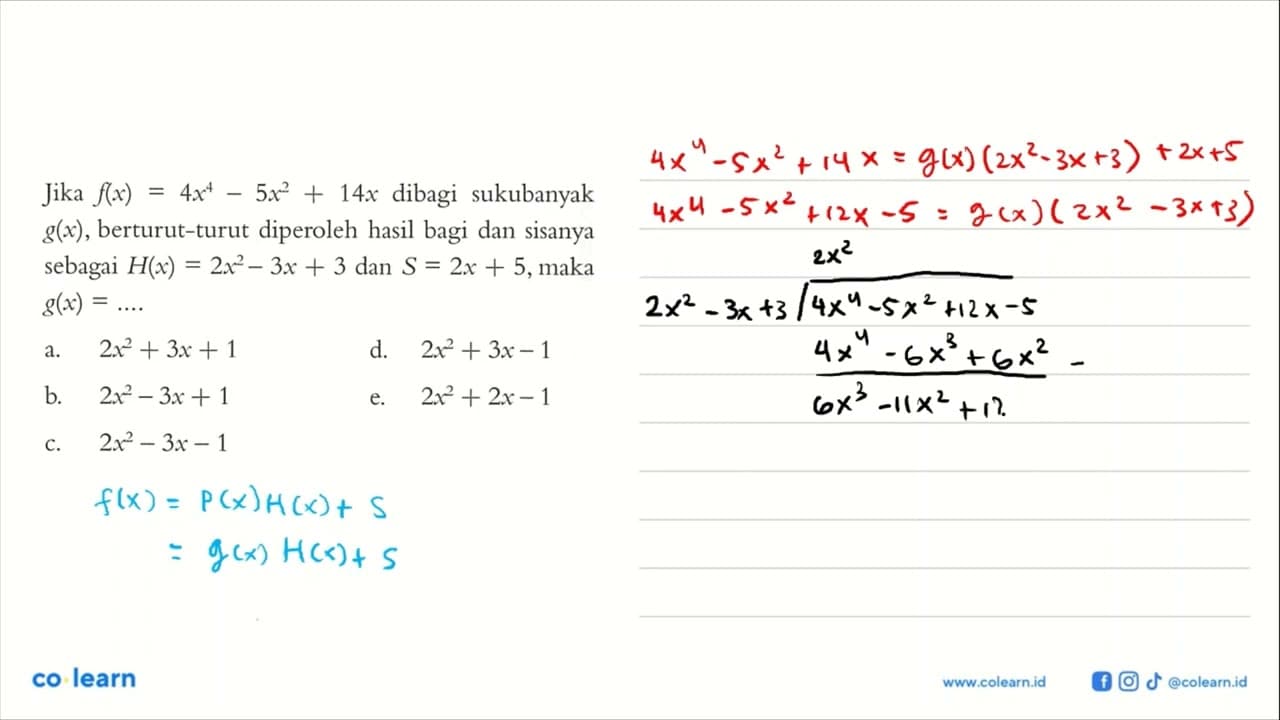 Jika f(x) = 4x⁴ − 5x² + 14x dibagi sukubanyak
g(x), berturut-turut diperoleh hasil bagi dan sisanya
sebagai H(x) = 2x² − 3x + 3 dan S = 2x + 5, maka
g(x) = ....
a. 2x² + 3x + 1
d. 2x² + 3x − 1
b. 2x² − 3x + 1
e. 2x² + 2x − 1
c. 2x² − 3x − 1
f(x) = P(x) H(x) + S
= g(x) H(x) + S
4x⁴ − 5x² + 14x = g(x) (2x² − 3x + 3) + 2x + 5
4x⁴ − 5x² + 12x − 5 = g(x) (2x² − 3x + 3)
2x²
2x² − 3x + 3 / 4x⁴ − 5x² + 12x − 5
4x⁴ − 6x³ + 6x² −
6x³ − 11x² + 12
co·learn
www.colearn.id
@colearn.id